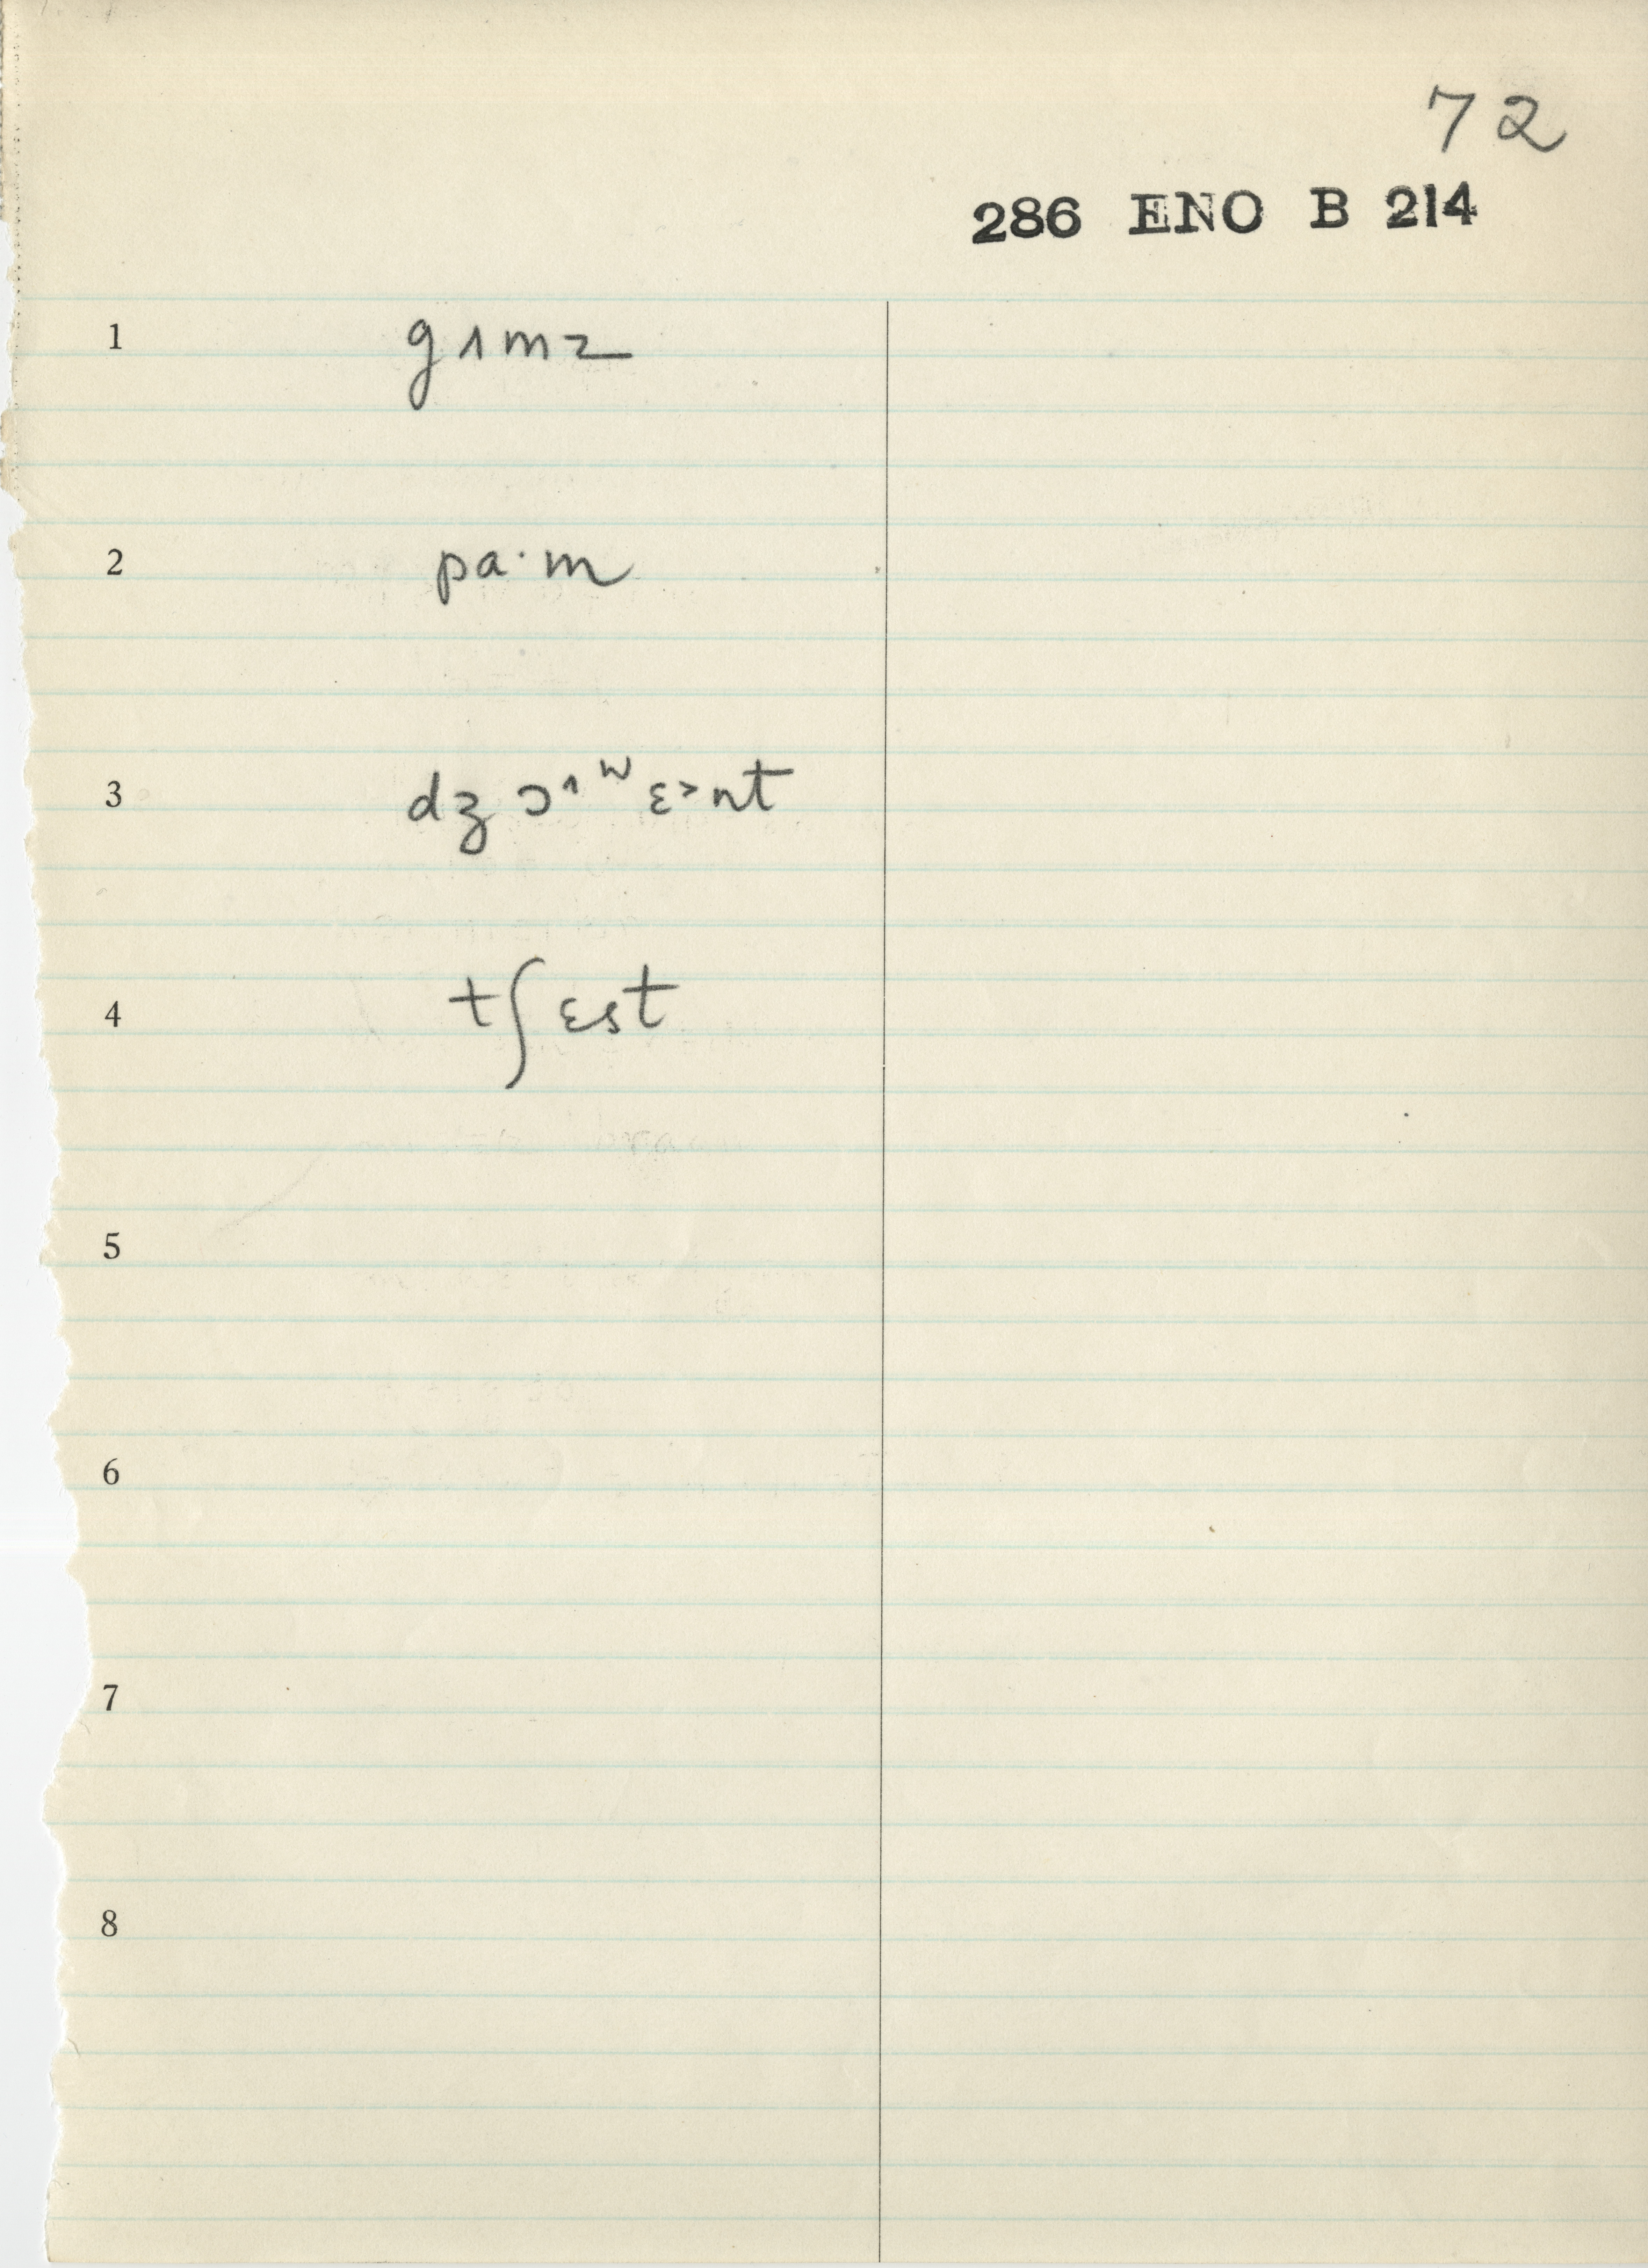 72
286 ENO B 214
1 gɪmz
2 pa·m
3 dʒɔ^ɪʷɛ>nt
4 tʃɛst
5
6
7
8